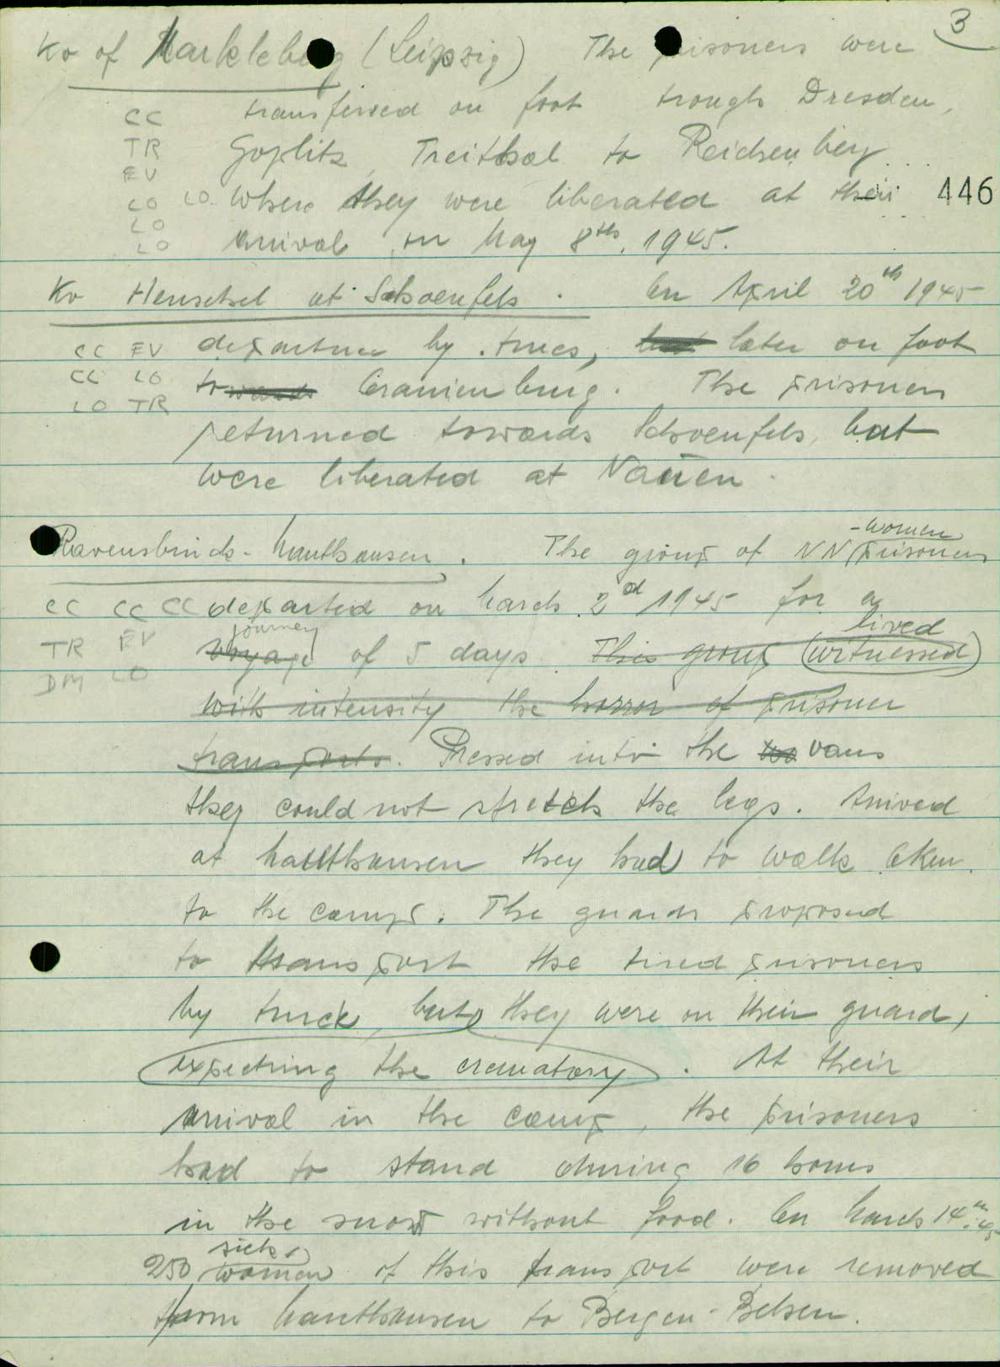 3
Ko of Markleberg (Leipzig) The prisoners were
CC transferred on foot trough Dresden,
TR Goplitz, Treithal to Reichenberg
EV
LO LO. where they were liberated at their 446
LO
LO arrival on May 8th, 1945.
Ko Henschel at Schoenfels. On April 20th 1945
CC EV departure by trucs, but later on foot
CC LO towards Oranienburg. The prisoners
LO TR
returned towards Schoenfels, but
were liberated at Nauen.
-women
Ravensbruck - Mauthausen. The group of NN prisoners
CC CC CC departed on March 2d 1945 for a
journey lived
TR EV voyage of 5 days. This group (witnessed)
DM LO
with intensity the horror of prisoner
transports. Pressed into the vans
they could not stretch the legs. Arrived
at Mauthausen they had to walk 6km.
to the camp. The guards proposed
to transport the tired prisoners
by truck, but they were on their guard,
expecting the crematory. At their
arrival in the camp, the prisoners
had to stand during 16 hours
in the snow without food. On March 14th 45
sick
250 women of this transport were removed
from Mauthausen to Bergen-Belsen.